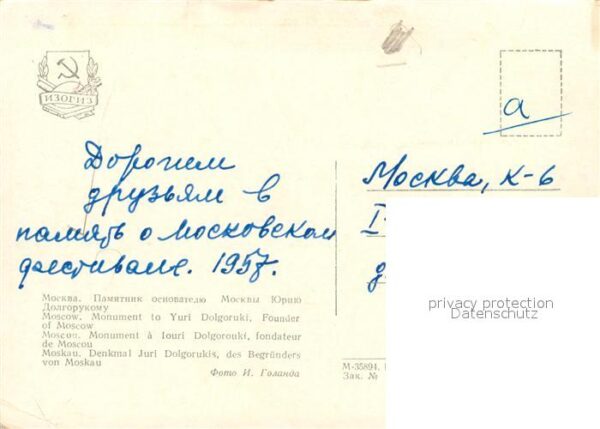 ИЗОГИЗ
а
Дорогим
друзьям в
память о московском
фестивале. 1957.
Москва. Памятник основателю Москвы Юрию
Долгорукому
Moscow. Monument to Yuri Dolgoruki, Founder
of Moscow
Moscou. Monument à Iouri Dolgorouki, fondateur
de Moscou
Moskau. Denkmal Juri Dolgorukis, des Begründers
von Moskau
Фото И. Голанда
Москва, К-6
I-
д.
privacy protection
Datenschutz
М-35894.
Зак. №